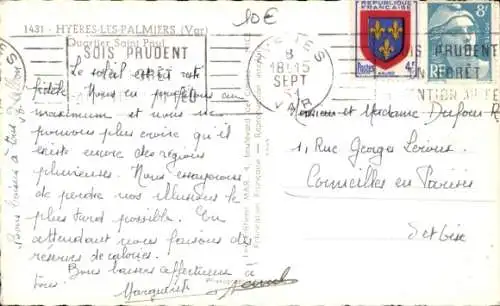 1431 - HYERES-LES-PALMIERS (Var)
Quartier Saint Paul
10€
SOIS PRUDENT
HYERES
18H15
8
SEPT
VAR
REPUBLIQUE FRANÇAISE
Postes
ANJOU
4F
8F
RF
IS PRUDENT
EN FORÊT
Le soleil est resté
fidèle. Nous en profitons au
maximum et nous ne
pouvons plus croire qu'il
existe encore des régions
pluvieuses. Nous essayerons
de perdre nos illusions le
plus tard possible. En
attendant nous faisons des
réserves de calories.
Bons baisers affectueux à
tous.
Marguerite
Bons baisers à tous
Monsieur et Madame Dufour R
1, Rue Georges
Cormeilles en Parisis
S et Oise